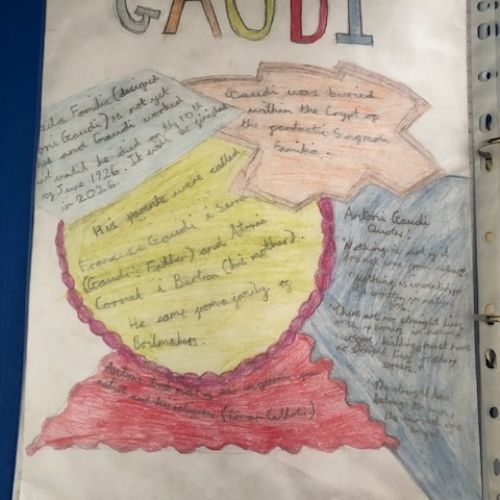 GAUDI
ada Familia (designed
oni Gaudi) is not yet
and Gaudi worked
it until he died on the 10th
of June 1926. It will be finished
in 2026.
Gaudi was buried
within the Crypt of
the fantastic Sagrada
Familia.
His parents were called
Francesc Gaudi i Serra
(Gaudi's Father) and
Cornet i Bertran (his mother).
He came from a family of
Boilmakers.
Antoni Gaudi
Quotes:
Nothing is art if it
from nature,
Nothing is invented, for
written in nature
There are no straight lines
or sharp corners in nature
buildings must have
no straight lines or sharp
corners.
The straight line
belongs to men,
the curved one
to
nature and his religion (Roman Catholic)